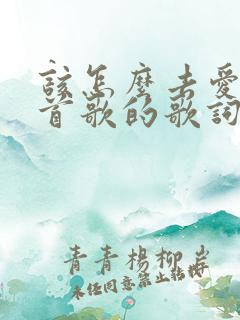 該怎麼去愛
首歌的歌詞
青青楊柳岸
未经同意禁止转载